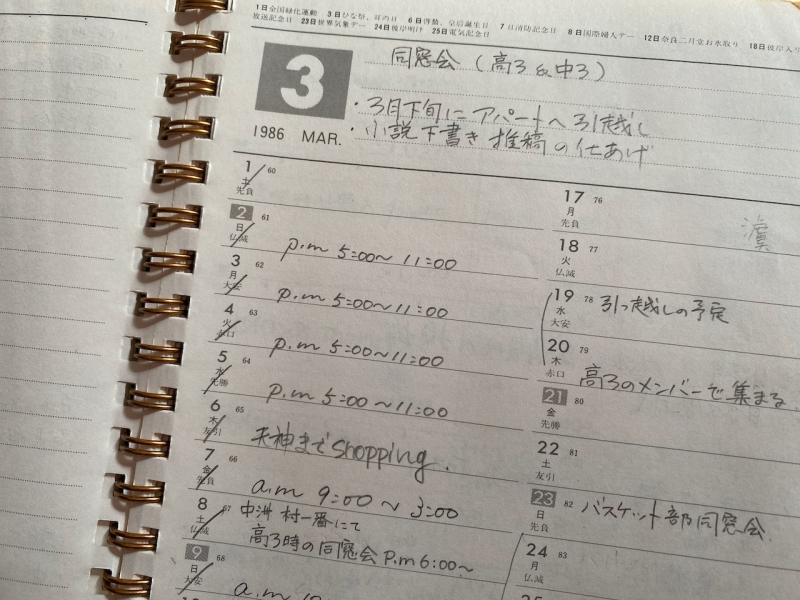 1日全国緑化運動 3日ひな祭、耳の日 6日啓蟄、皇后誕生日 7日消防記念日 8日国際婦人デー 12日奈良二月堂お水取り 18日彼岸入り
放送記念日 23日世界気象デー 24日彼岸明け 25日電気記念日
3
同窓会 (高3 & 中3)
・3月下旬に アパートへ引越し
・小説下書き 推稿の仕あげ
1986 MAR.
1 60
土
先負
2 61
日
仏滅
p.m 5:00~11:00
3 62
月
大安
p.m 5:00~11:00
4 63
火
赤口
p.m 5:00~11:00
5 64
水
先勝
p.m 5:00~11:00
6 65
木
友引
天神までshopping.
7 66
金
先負
a.m 9:00~3:00
8 67
土
仏滅
中洲 村一番にて
高3時の同窓会 P.m 6:00~
9 68
日
大安
a.m
17 76
月
先負
18 77
火
仏滅
19 78 引っ越しの予定
水
大安
20 79
木
赤口
高3のメンバーで集まる
21 80
金
先勝
22 81
土
友引
23 82 バスケット部同窓会
日
先負
24 83
月
仏滅